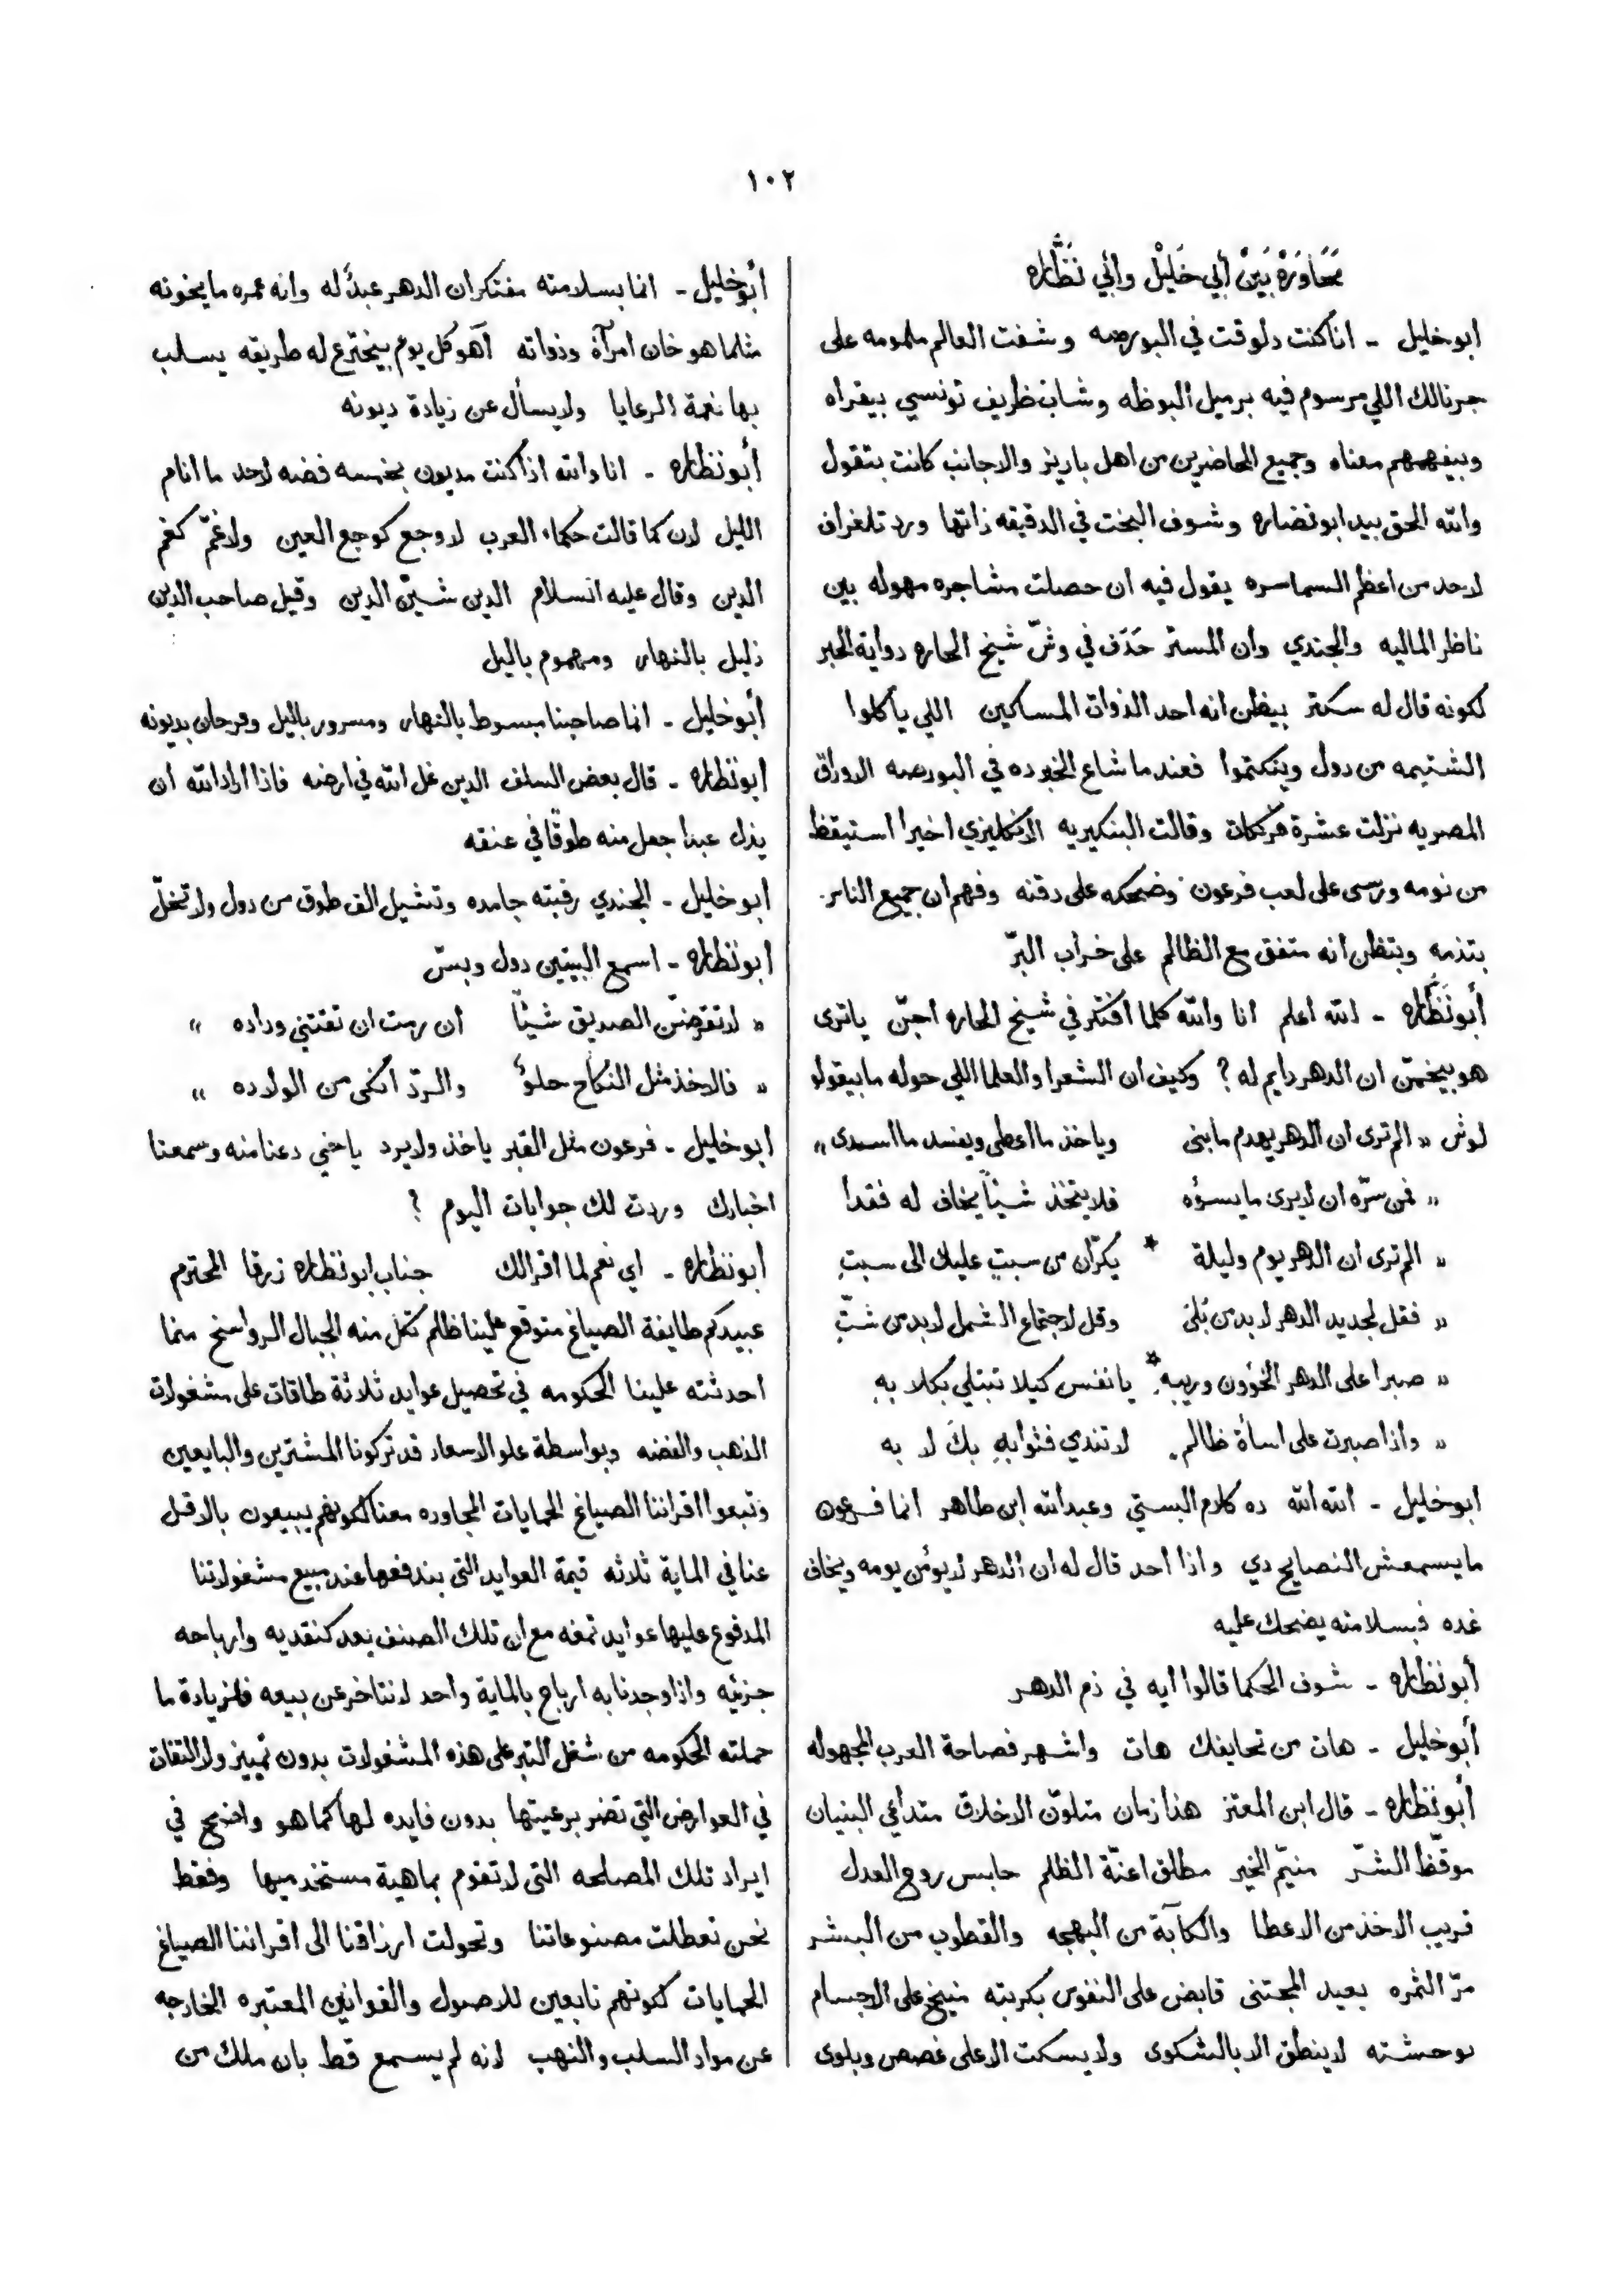 ١٠٢
مُحَاوَرَةْ بَيَنْ أَبِي خَلِيْلْ وأَبِي نَضَّاره
ابو خليل - انا كنت دلوقت في البورصه وشفت العالم ملمومه على
جرنالك اللي مرسوم فيه برميل البوظه وشاب ظريف تونسي بيقراه
وبيفهمهم معناه وجميع الحاضرين من اهل باريز والاجانب كانت بتقول
والله الحق بيد ابو نضاره وشوف البخت في الدقيقه ذاتها ورد تلغراف
لاحد من اعظم السماسره يقول فيه ان حصلت مشاجره مهوله بين
ناظر الماليه والجندي وان المستر حَدَف في وشّ شيخ الحاره دواية الحبر
لكونه قال له سكتر بيظن انه احد الذوات المساكين اللي ياكلوا
الشتيمه من دول ويتكتموا فعند ما شاع الخبر ده في البورصه الاوراق
المصريه نزلت عشرة فرنكات وقالت البنكيريه الانكليزي اخيرا استيقظ
من نومه ورسى على لعب فرعون وضحكه على دقنه وفهم ان جميع الناس
بتذمه وبتظن انه متفق مع الظالم على خراب البرّ
أبو نَظَّاره - الله اعلم انا والله كلما افتكر في شيخ الحاره اجنّ ياترى
هو بيخمّن ان الدهر دايم له ؟ وكيف ان الشعرا والعلما اللي حوله ما بيقولو
لوش « الم ترى ان الدهر يهدم ما بنى وياخذ ما اعطى ويفسد ما اسدى »
« فمن سرّه ان لايرى ما يسؤه فلا يتخذ شيئاً يخاف له فقدا
« الم ترى ان الدهر يوم وليلة * يكرّان من سبتٍ عليك الى سبتِ
« فقل لجديد الدهر لا بد من بُلىً وقل لاجتماع الشمل لا بد من شتِّ
« صبرا على الدهر الخؤون وريبه * يا نفس كيلا تبتلي بكلا بهِ
« واذا صبرت على اساة ظالم لا تندي فثوابهِ بكَ لا به
ابو خليل - الله الله ده كلام البستي وعبدالله ابن طاهر انما فرعون
ما يسمعش النصايح دي واذا احد قال له ان الدهر لايؤمن يومه ويخاف
غده فبسلامته يضحك عليه
أبو نظاره - شوف الحكما قالوا ايه في ذم الدهر
أبو خليل - هات من تحايفك هات واشهر فصاحة العرب المجهوله
أبو نظاره - قال ابن المعتز هذا زمان متلوّن الاخلاق متداعي البنيان
موقّظ الشرّ منيّم الخير مطلق اعنّة الظلم حابس روح العدل
قريب الاخذ من الاعطا والكآبة من البهجه والقطوب من البشر
مرّ الثمره بعيد المجتنى قابض على النفوس بكربته منيخ على الاجسام
بوحشته لا ينطق الا بالشكوى ولا يسكت الا على غصص وبلوى
أبو خليل - انما بسلامته مفتكر ان الدهر عبدٌ له وانه عمره ما يخونه
مثلما هو خان امرآة وذواته آهو كل يوم بيخترع له طريقه يسلب
بها نعمة الرعايا ولا يسأل عن زيادة ديونه
أبو نظاره - انا والله اذا كنت مديون بخمسه فضه لاحد ما انام
الليل لان كما قالت حكماء العرب لا وجع كوجع العين ولا غمّ كغم
الدين وقال عليه السلام الدين شينّ الدين وقيل صاحب الدين
ذليل بالنهار ومهموم باليل
أبو خليل - انما صاحبنا مبسوط بالنهار ومسرور باليل وفرحان بديونه
ابو نظاره - قال بعض السلف الدين غل الله في ارضه فاذا اراد الله ان
يذل عبدا جعل منه طوقًا في عنقه
ابو خليل - الجندي رقبته جامده وتشيل الف طوق من دول ولا تخلّ
ابو نظاره - اسمع البيتين دول وبسّ
« لا تقرضنّ الصديق شيئاً ان رمت ان تقتني وداده »
« فالاخذ مثل النكاح حلوٌ والردّ انكى من الولاده »
ابو خليل - فرعون مثل القبر ياخذ ولا يرد يا خي دعنا منه وسمعنا
اخبارك وردت لك جوابات اليوم ؟
أبو نظاره - اي نعم لما اقرالك جناب ابو نظاره زرقا المحترم
عبيدكم طايفة الصياغ متوقع علينا ظالم تكل منه الجبال الرواسخ مما
احدثته علينا الحكومه في تحصيل عوايد ثلاثة طاقات على مشغولات
الذهب والفضه وبواسطة علو الاسعار قد تركونا المشترين والبايعين
وتبعوا اقراننا الصياغ الحمايات المجاوره معنا لكونهم يبيعون بالاقل
عنا في الماية ثلاثه قيمة العوايد التي بندفعها عند مبيع مشغولاتنا
المدفوع عليها عوايد تمغه مع ان تلك الصنف يعد كنقديه وارباحه
جزئيه واذا وجدنا به ارباح بالماية واحد لانتاخر عن بيعه فلزيادة ما
حملته الحكومه من شغل التبر على هذه المشغولات بدون تمييز ولا التفات
في العوارض التي تضر برعيتها بدون فايده لها كما هو واضح في
ايراد تلك المصلحه التي لا تقوم بماهية مستخدميها وفقط
نحن تعطلت مصنوعاتنا وتحولت ارزاقنا الى اقراننا الصياغ
الحمايات لكونهم تابعين للاصول والقوانين المعتبره الخارجه
عن مواد السلب والنهب لانه لم يسمع قط بان ملك من